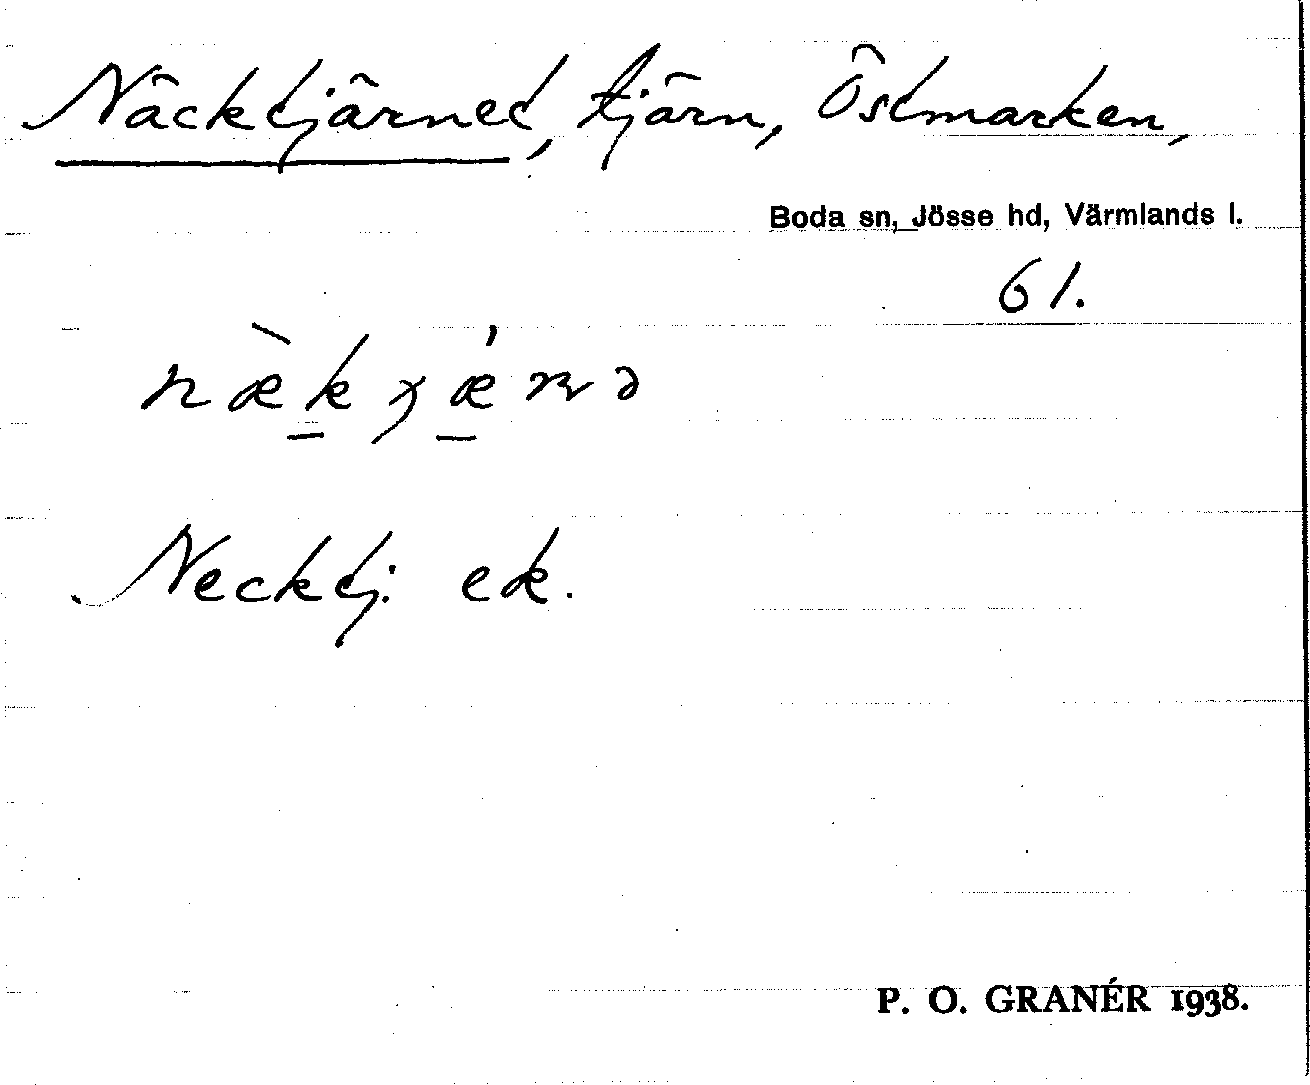 Näcktjärnet, tjärn, Östmarken,
Boda sn, Jösse hd, Värmlands l.
61.
Necktj. ek.
P. O. GRANÉR 1938.